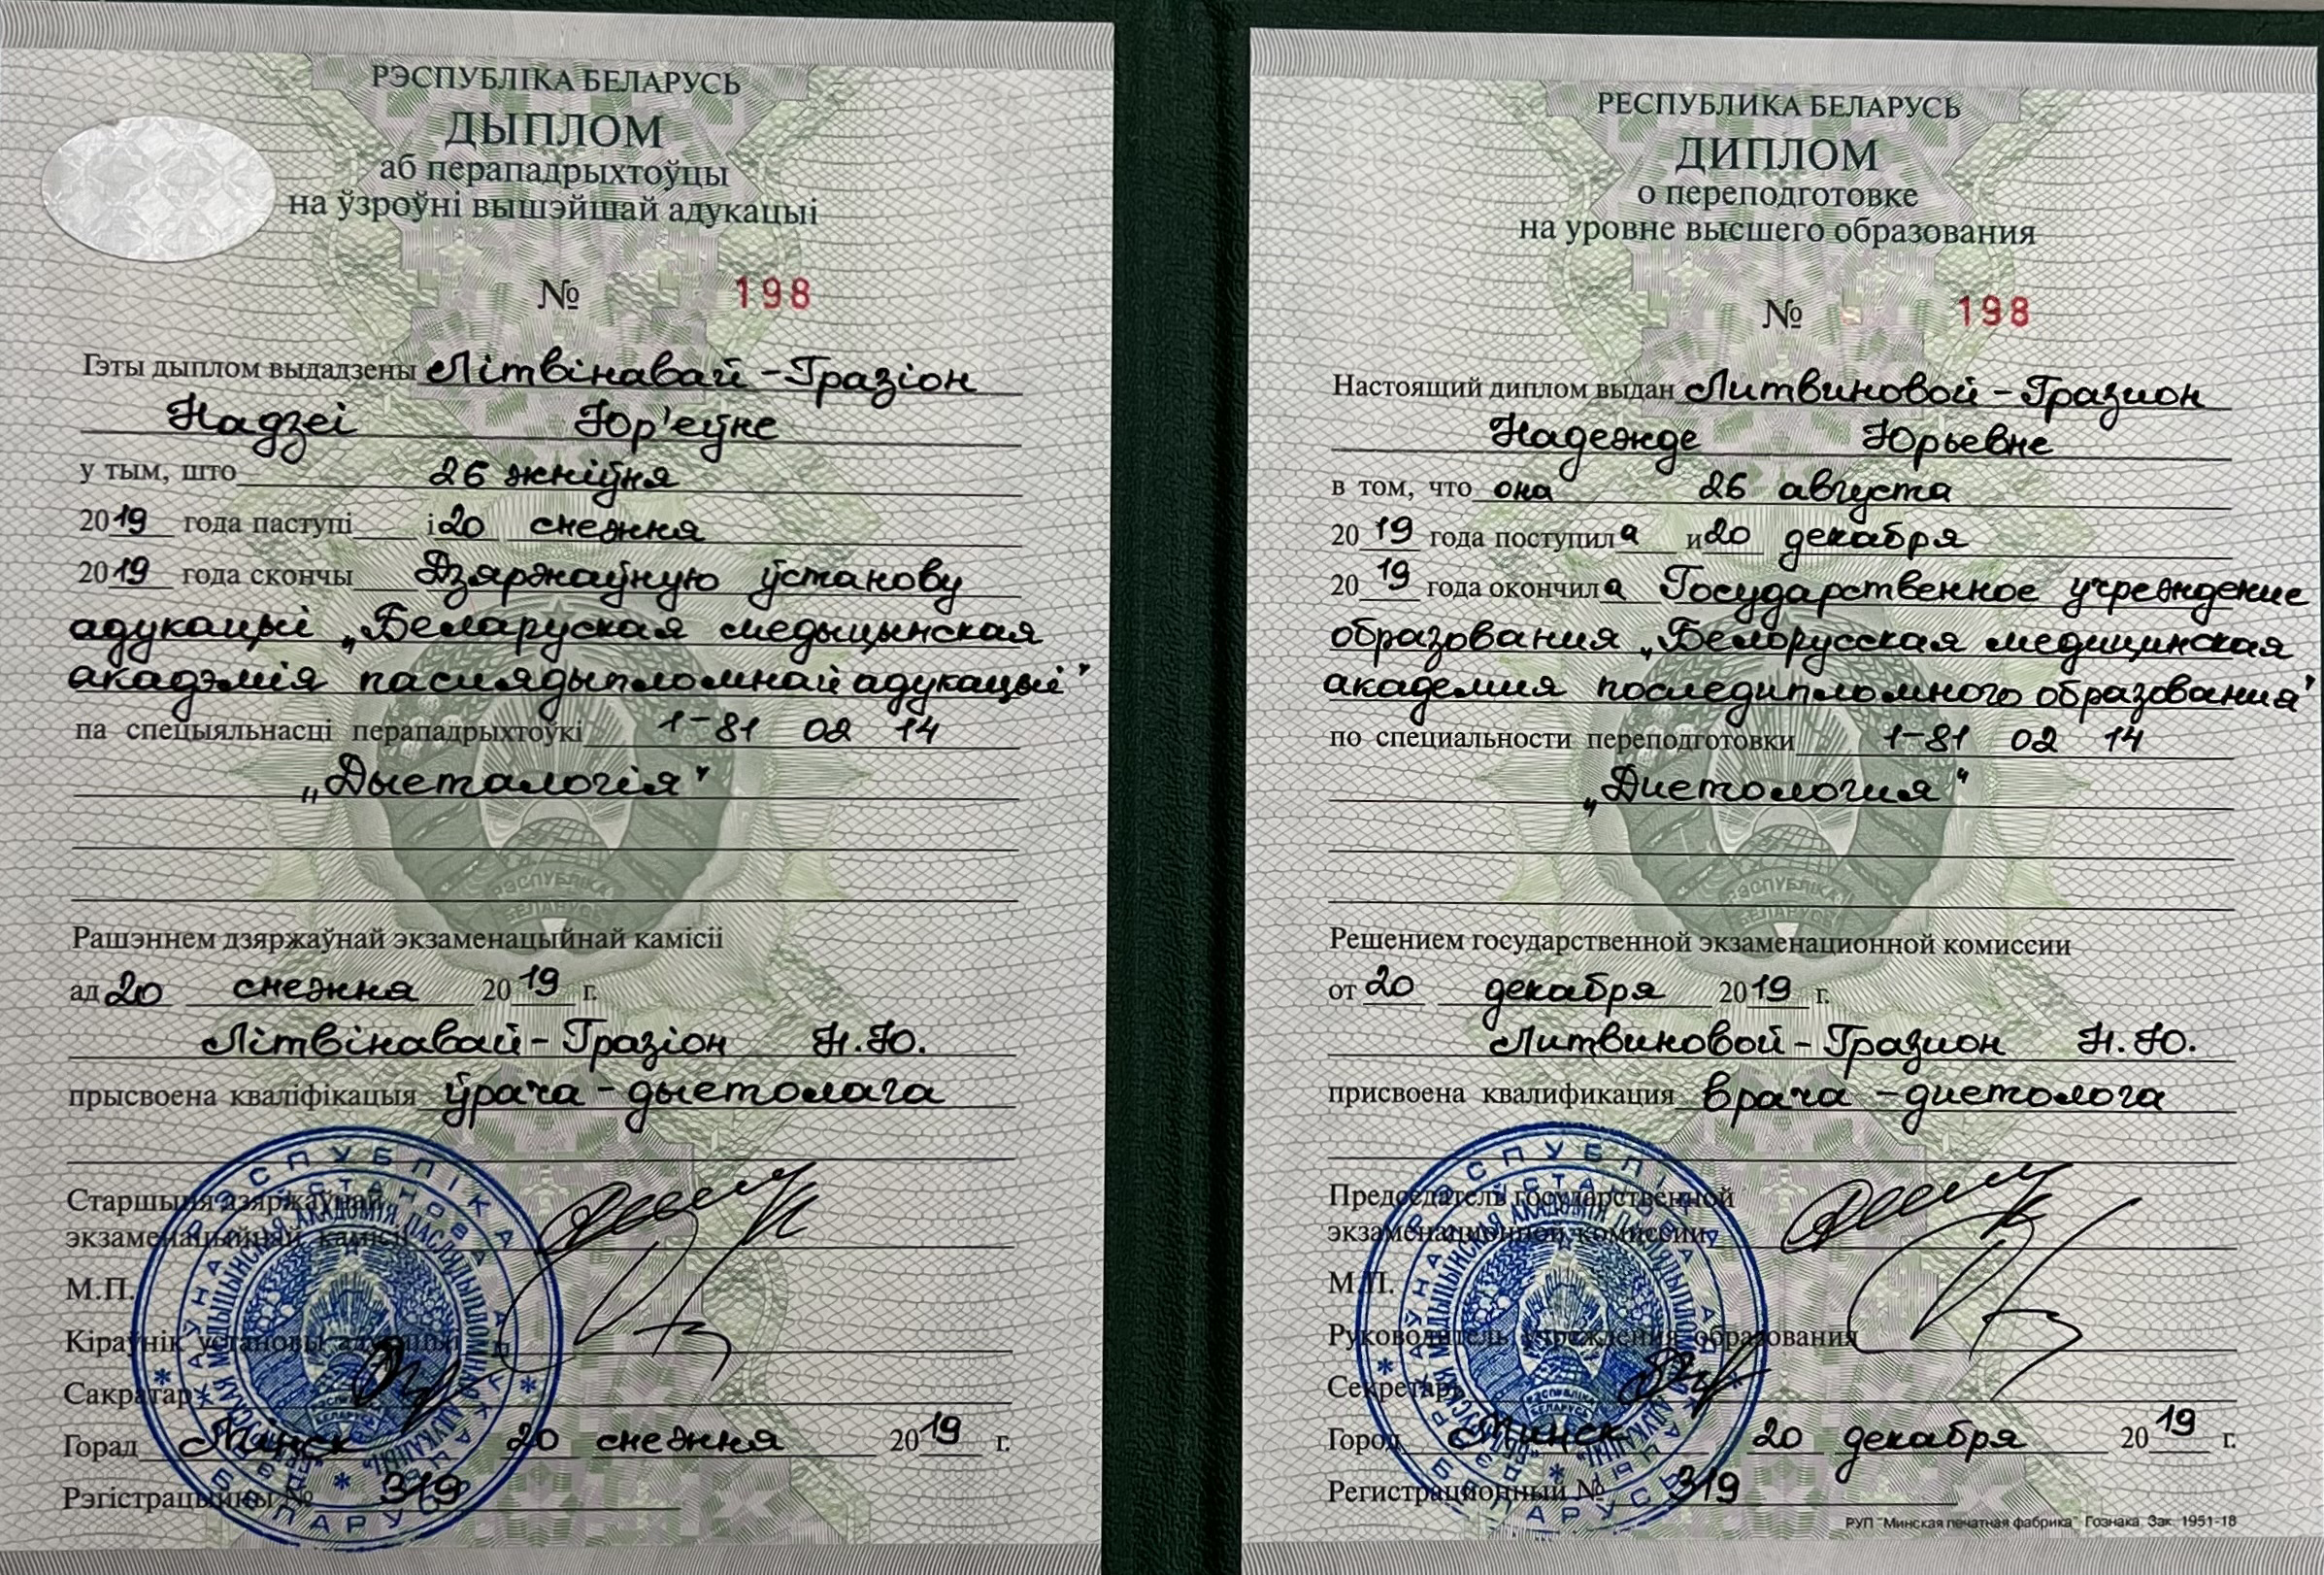 РЭСПУБЛІКА БЕЛАРУСЬ
ДЫПЛОМ
аб перападрыхтоўцы
на ўзроўні вышэйшай адукацыі
№ 198
Гэты дыплом выдадзены Літвінавай-Гразіон
Надзеі Юр'еўне
у тым, што 26 жніўня
2019 года паступі і 20 снежня
2019 года скончы Дзяржаўную ўстанову
адукацыі „Беларуская медыцынская
акадэмія паслядыпломнай адукацыі"
па спецыяльнасці перападрыхтоўкі 1-81 02 14
„Дыеталогія"
РЭСПУБЛІКА
БЕЛАРУСЬ
Рашэннем дзяржаўнай экзаменацыйнай камісіі
ад 20 снежня 2019 г.
Літвінавай-Гразіон Н.Ю.
прысвоена кваліфікацыя ўрача-дыетолага
Старшыня дзяржаўнай
экзаменацыйнай камісіі
М.П.
Кіраўнік установы адукацыі
Сакратар
Горад Мінск 20 снежня 2019 г.
Рэгістрацыйны № 319
РЕСПУБЛИКА БЕЛАРУСЬ
ДИПЛОМ
о переподготовке
на уровне высшего образования
№ 198
Настоящий диплом выдан Литвиновой-Гразион
Надежде Юрьевне
в том, что она 26 августа
2019 года поступила и 20 декабря
2019 года окончила Государственное учреждение
образования „Белорусская медицинская
академия последипломного образования"
по специальности переподготовки 1-81 02 14
„Диетология"
РЭСПУБЛІКА
БЕЛАРУСЬ
Решением государственной экзаменационной комиссии
от 20 декабря 2019 г.
Литвиновой-Гразион Н.Ю.
присвоена квалификация врача-диетолога
Председатель государственной
экзаменационной комиссии
М.П.
Руководитель учреждения образования
Секретарь
Город Минск 20 декабря 2019 г.
Регистрационный № 319
РУП "Минская печатная фабрика" Гознака. Зак. 1951-18